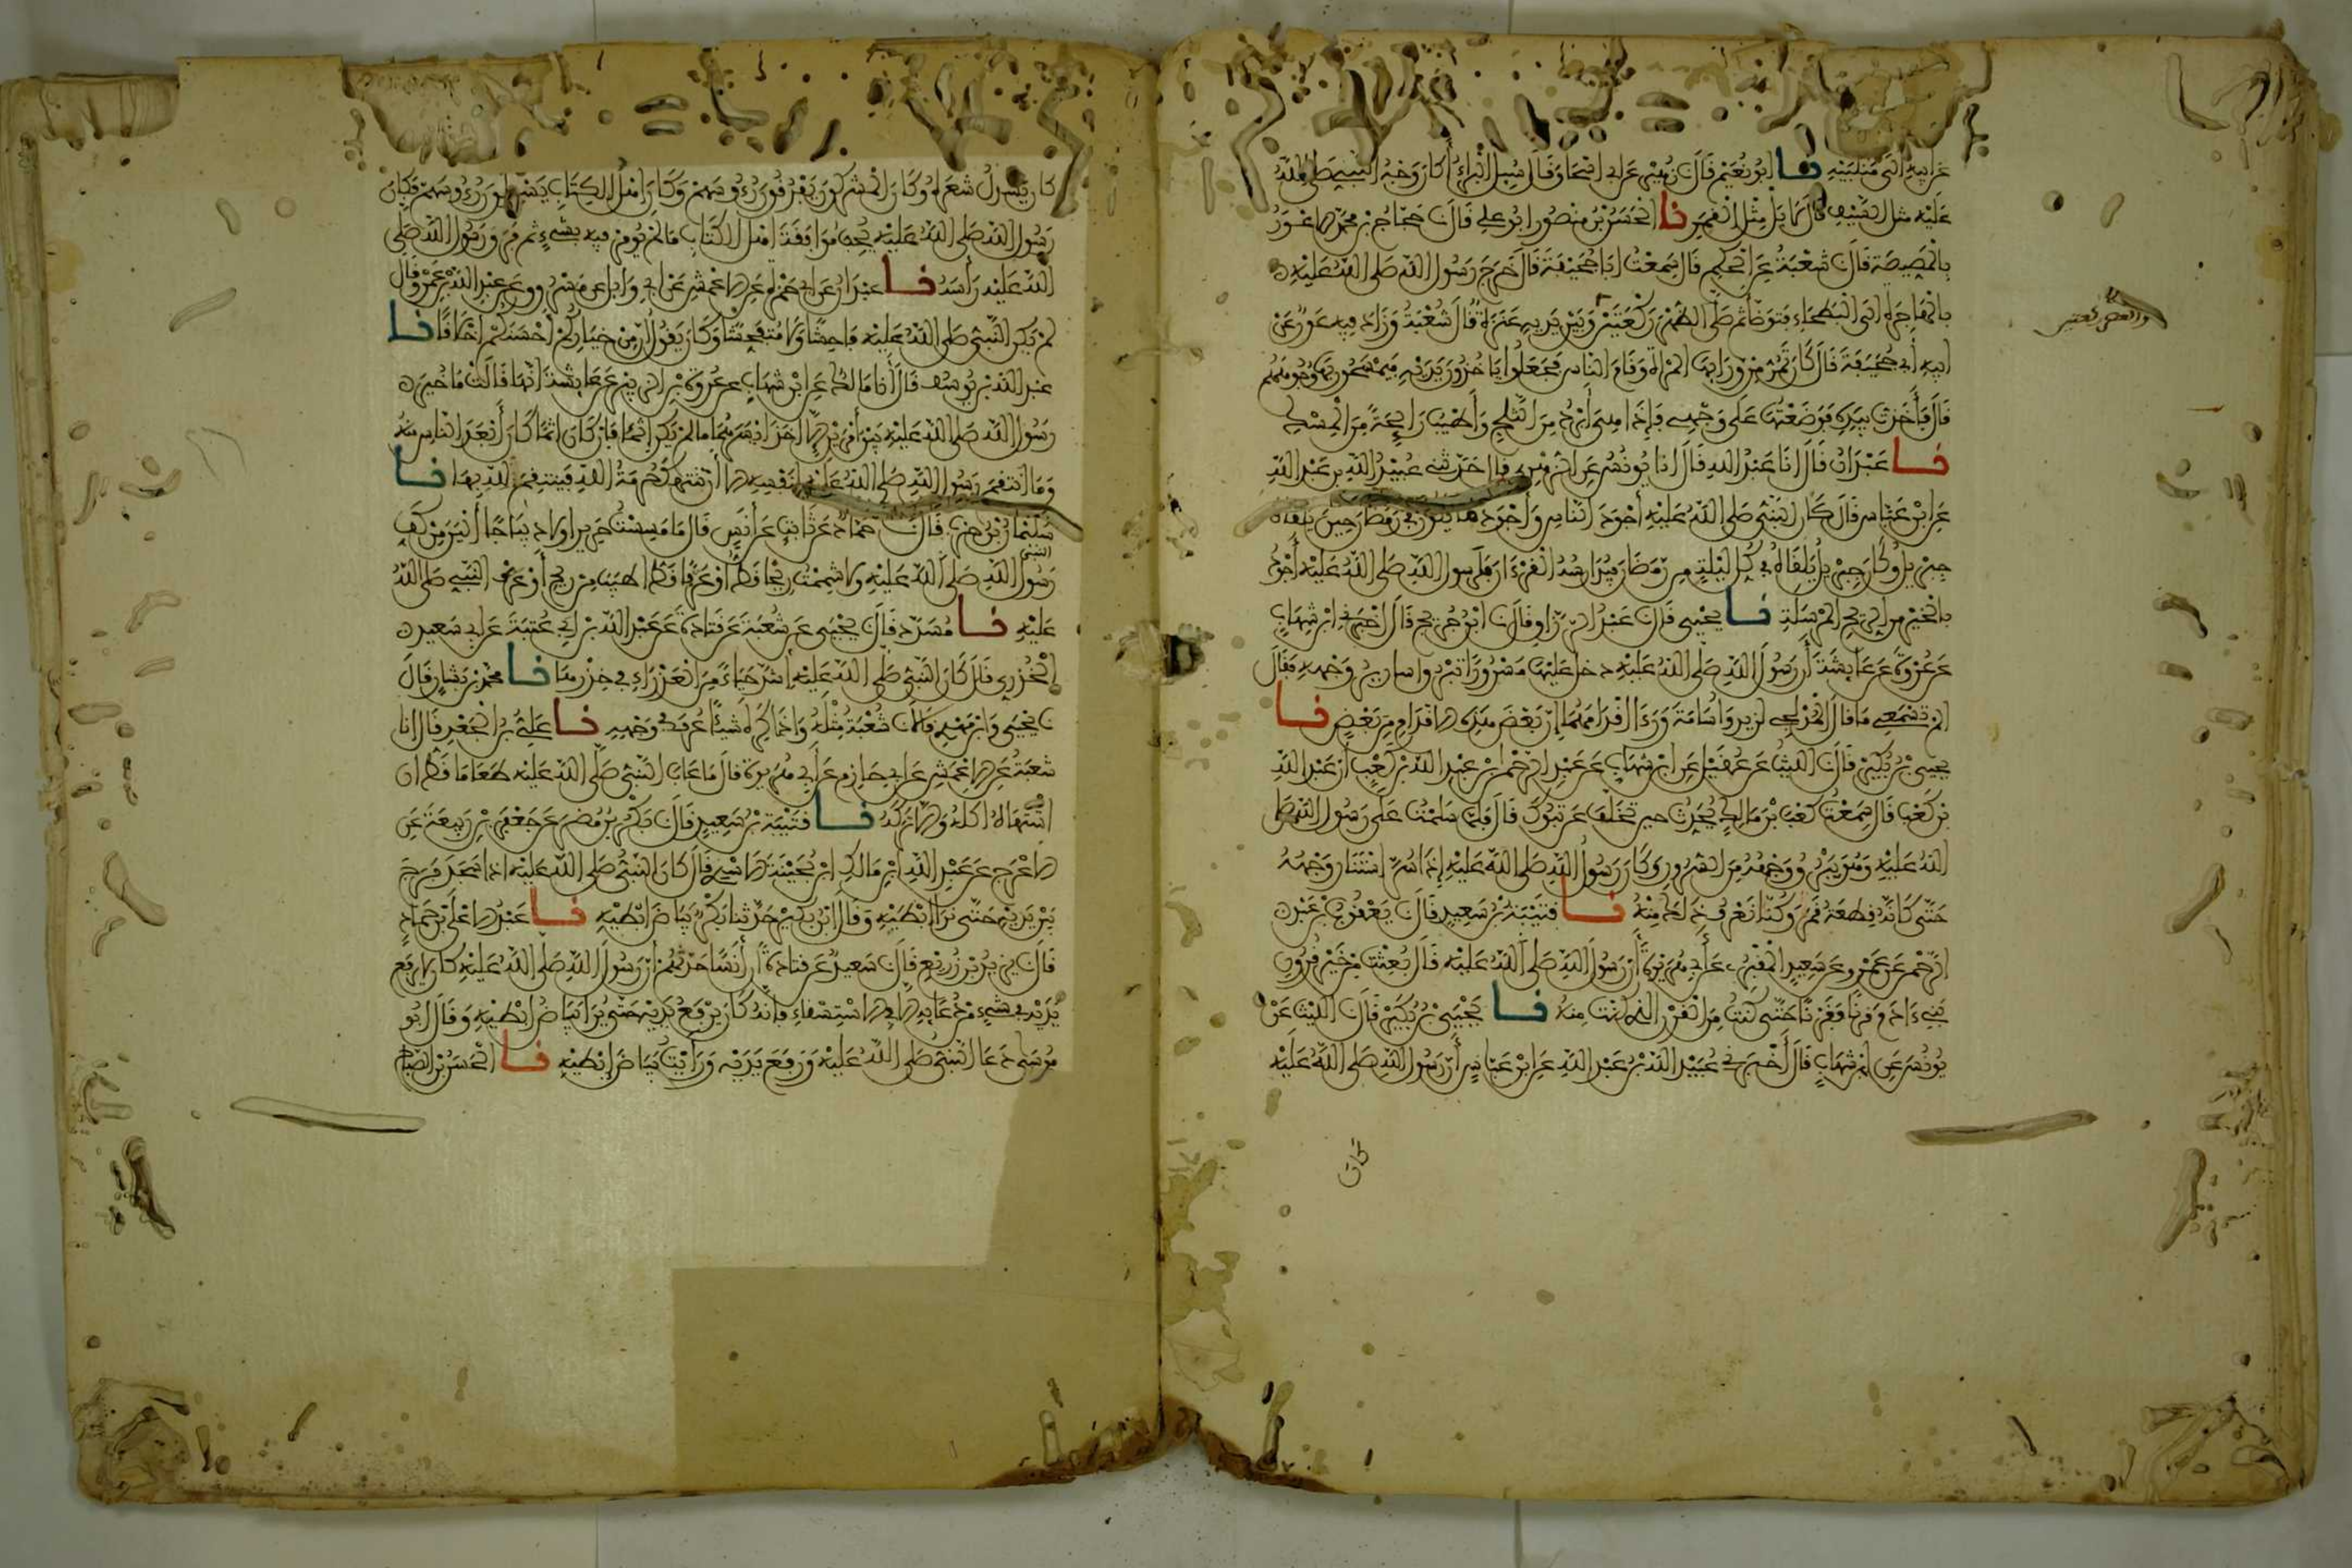 عن أبيه إلى منكبيه نا أبو نعيم قال نا زهير عن أبي إسحاق قال سئل البراء أكان وجه النبي صلى الله
عليه مثل السيف قال لا بل مثل القمر نا الحسن بن منصور أبو علي قال نا حجاج بن محمد الأعور
بالمصيصة قال نا شعبة عن الحكم قال سمعت أبا جحيفة قال خرج رسول الله صلى الله عليه
بالهاجرة إلى البطحاء فتوضأ ثم صلى الظهر ركعتين وبين يديه عنزة قال شعبة وزاد فيه عون عن
أبيه أبي جحيفة قال كان تمر من ورائها المرأة وقام الناس فجعلوا ياخذون يديه فيمسحون بها وجوههم
قال فأخذت بيده فوضعتها على وجهي فإذا هي أبرد من الثلج وأطيب رائحة من المسك
نا عبدان قال أنا عبد الله قال أنا يونس عن الزهري قال حدثني عبيد الله بن عبد الله
عن ابن عباس قال كان النبي صلى الله عليه أجود الناس وأجود ما يكون في رمضان حين يلقاه
جبريل وكان جبريل يلقاه في كل ليلة من رمضان فيدارسه القرءان فلرسول الله صلى الله عليه أجود
بالخير من الريح المرسلة نا يحيى قال نا عبد الرزاق قال نا ابن جريج قال أخبرني ابن شهاب
عن عروة عن عائشة أن رسول الله صلى الله عليه دخل عليها مسرورا تبرق أسارير وجهه فقال
ألم تسمعي ما قال المدلجي لزيد وأسامة ورءا أقدامهما إن بعض هذه الأقدام من بعض نا
يحيى بن بكير قال نا الليث عن عقيل عن ابن شهاب عن عبد الرحمن بن عبد الله بن كعب أن عبد الله
بن كعب قال سمعت كعب بن مالك يحدث حين تخلف عن تبوك قال فلما سلمت على رسول الله صلى
الله عليه وهو يبرق وجهه من السرور وكان رسول الله صلى الله عليه إذا سر استنار وجهه
حتى كأنه قطعة قمر وكنا نعرف ذلك منه نا قتيبة بن سعيد قال نا يعقوب بن عبد
الرحمن عن عمرو عن سعيد المقبري عن أبي هريرة أن رسول الله صلى الله عليه قال بعثت من خير قرون
بني ءادم قرنا فقرنا حتى كنت من القرن الذي كنت منه نا يحيى بن بكير قال نا الليث عن
يونس عن ابن شهاب قال أخبرني عبيد الله بن عبد الله عن ابن عباس أن رسول الله صلى الله عليه
كان
كان يسدل شعره وكان المشركون يفرقون رءوسهم وكان أهل الكتاب يسدلون رءوسهم فكان
رسول الله صلى الله عليه يحب موافقة أهل الكتاب ما لم يؤمر فيه بشيء ثم فرق رسول الله صلى
الله عليه رأسه نا عبدان عن أبي حمزة عن الأعمش عن أبي وائل عن مسروق عن عبد الله بن عمرو قال
لم يكن النبي صلى الله عليه فاحشا ولا متفحشا وكان يقول إن من خياركم أحسنكم أخلاقا نا
عبد الله بن يوسف قال أنا مالك عن ابن شهاب عن عروة بن الزبير عن عائشة أنها قالت ما خير
رسول الله صلى الله عليه بين أمرين إلا أخذ أيسرهما ما لم يكن إثما فإن كان إثما كان أبعد الناس منه
وما انتقم رسول الله صلى الله عليه لنفسه إلا أن تنتهك حرمة الله فينتقم لله بها نا
سليمان بن حرب قال نا حماد عن ثابت عن أنس قال ما مسست حريرا ولا ديباجا ألين من كف
رسول الله صلى الله عليه ولا شممت ريحا قط أو عرفا قط أطيب من ريح أو عرف النبي صلى الله
عليه نا مسدد قال نا يحيى عن شعبة عن قتادة عن عبد الله بن أبي عتبة عن أبي سعيد
الخدري قال كان النبي صلى الله عليه أشد حياء من العذراء في خدرها نا محمد بن بشار قال
نا يحيى وابن مهدي قالا نا شعبة مثله وإذا كره شيئا عرف في وجهه نا علي بن الجعد قال أنا
شعبة عن الأعمش عن أبي حازم عن أبي هريرة قال ما عاب النبي صلى الله عليه طعاما قط إن
اشتهاه أكله وإلا تركه نا قتيبة بن سعيد قال نا بكر بن مضر عن جعفر بن ربيعة عن
الأعرج عن عبد الله ابن مالك ابن بحينة الأسدي قال كان النبي صلى الله عليه إذا سجد فرج
بين يديه حتى نرا إبطيه وقال ابن بكير حدثنا بكر بياض إبطيه نا عبد الأعلى بن حماد
قال نا يزيد بن زريع قال نا سعيد عن قتادة أن أنسا حدثهم أن رسول الله صلى الله عليه كان لا يرفع
يديه في شيء من دعائه إلا في الاستسقاء فإنه كان يرفع يديه حتى يرا بياض إبطيه وقال أبو
موسى دعا النبي صلى الله عليه ورفع يديه ورأيت بياض إبطيه نا الحسن بن الصباح